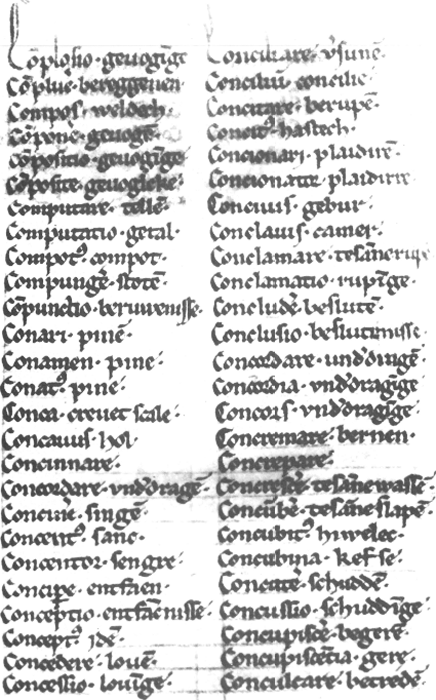 Cōplosio · geuogīge
Cōplue͛ · bereggenen
Compos · weldech ·
Cōpone͛ · geuogē ·
Cōpositio · geuogīge
Cōposite · geuogleke ·
Computare · tellē ·
Computatio · getal ·
Compotꝰ · compot ·
Compunge͛ · stotē ·
Cōpunctio · beruwenisse ·
Conari · pinē ·
Conamen · pine ·
Conatꝰ · pine ·
Conca · creuet scale ·
Concauus · hol ·
Concinnare ·
Concordare · vnd͛dragē ·
Concine͛ · singē ·
Concentꝰ · sanc ·
Concentor · sengre ·
Concipe · entfaen ·
Conceptio · entfaēnisse ·
Conceptꝰ · jdē ·
Concedere · louē ·
Concessio · louīge ·
Conciliare · v͛sunē ·
Conciliū · concilie ·
Concitare · berupē ·
Concitꝰ · hastech ·
Concionari · plaidirē ·
Concionator · plaidirre
Conciuis · gebur ·
Conclauis · camer ·
Conclamare · tesāne rupē
Conclamatio · rupīge ·
Conclude͛ · beslutē ·
Conclusio · beslutenisse ·
Concordare · vnd͛dīngē ·
Concordia · vnd͛dragīge
Concors · vnd͛dragīge ·
Concremare · bernen ·
Concrepare ·
Concresce͛ · tesāne wasse ·
Concūbe͛ · tesāne slapē ·
Concubitꝰ · huwelec ·
Concubina · kefse ·
Concute͛ · schuddē ·
Concussio · schuddīge ·
Concupisce͛ · begerē ·
Concupiscētia · gere ·
Conculcare · betredē ·